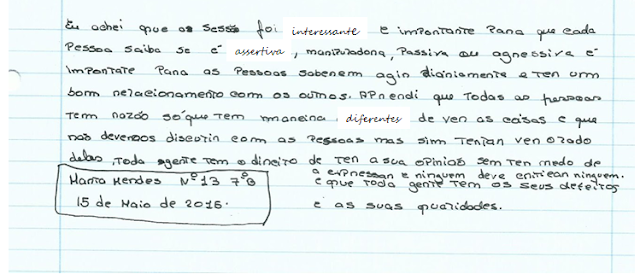 Eu achei que as sessõ foi interessante e importante para que cada
Pessoa saiba se é assertiva, manipuladora, Passiva ou agressiva é
importate para as Pessoas saberem agir diariamente e ter um
bom relacionamento com os outros. APrendi que Todas as pessoas
tem razão só que tem maneira diferentes de ver as coisas e que
nós devemos discutir com as Pessoas mas sim Tentar ver o lado
delas, Toda agente tem o direito de ter a sua opinião sem ter medo de
a expressar e ninguem deve criticar ninguem.
e que toda gente tem os seus defeitos
e as suas qualidades.
Marta Mendes Nº13 7ºB
15 de Maio de 2016.